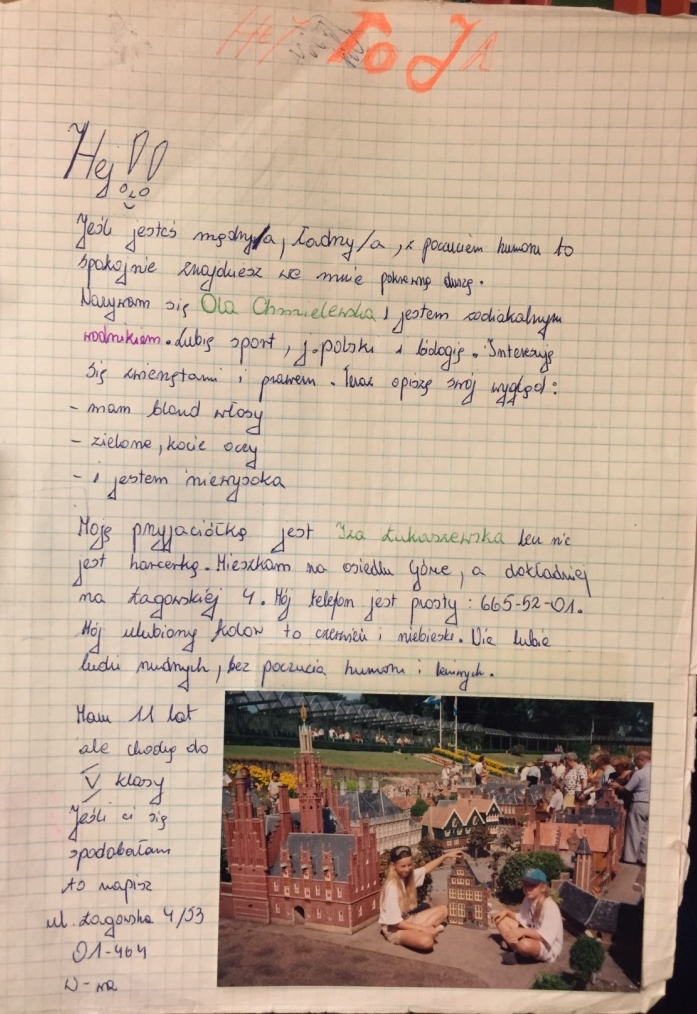 To JA
Hej!!
Jeśli jesteś mądry/a, ładny/a, z poczuciem humoru to
spokojnie znajdziesz we mnie pokrewną duszę.
Nazywam się Ola Chmielewska i jestem zodiakalnym
wodnikiem. Lubię sport, j. polski i biologię. Interesuję
się zwierzętami i prawem. Teraz opiszę swój wygląd:
- mam blond włosy
- zielone, kocie oczy
- i jestem niewysoka
Moją przyjaciółką jest Iza Łukaszewska lecz nie
jest harcerką. Mieszkam na osiedlu Górce, a dokładniej
na Łagowskiej 4. Mój telefon jest prosty: 665-52-01.
Mój ulubiony kolor to czerwień i niebieski. Nie lubię
ludzi nudnych, bez poczucia humoru i leniwych.
Mam 11 lat
ale chodzę do
V klasy
Jeśli ci się
spodobałam
to napisz
ul. Łagowska 4/53
01-464
W-wa